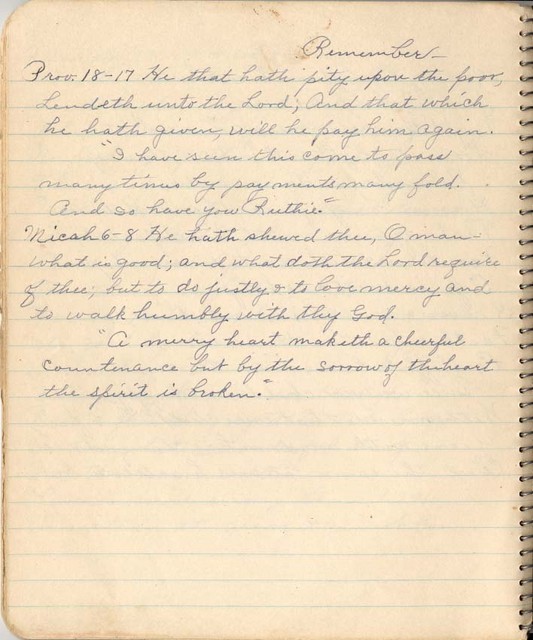 Remember—
Prov. 18-17 He that hath pity upon the poor,
Lendeth unto the Lord; And that which
he hath given, will he pay him again.
"I have seen this come to pass
many times by payments many fold.
And so have you Ruthie."
Micah 6-8 He hath shewed thee, O man—
what is good; and what doth the Lord require
of thee; but to do justly & to love mercy and
to walk humbly with thy God.
"A merry heart maketh a cheerful
countenance but by the sorrow of the heart
the spirit is broken."